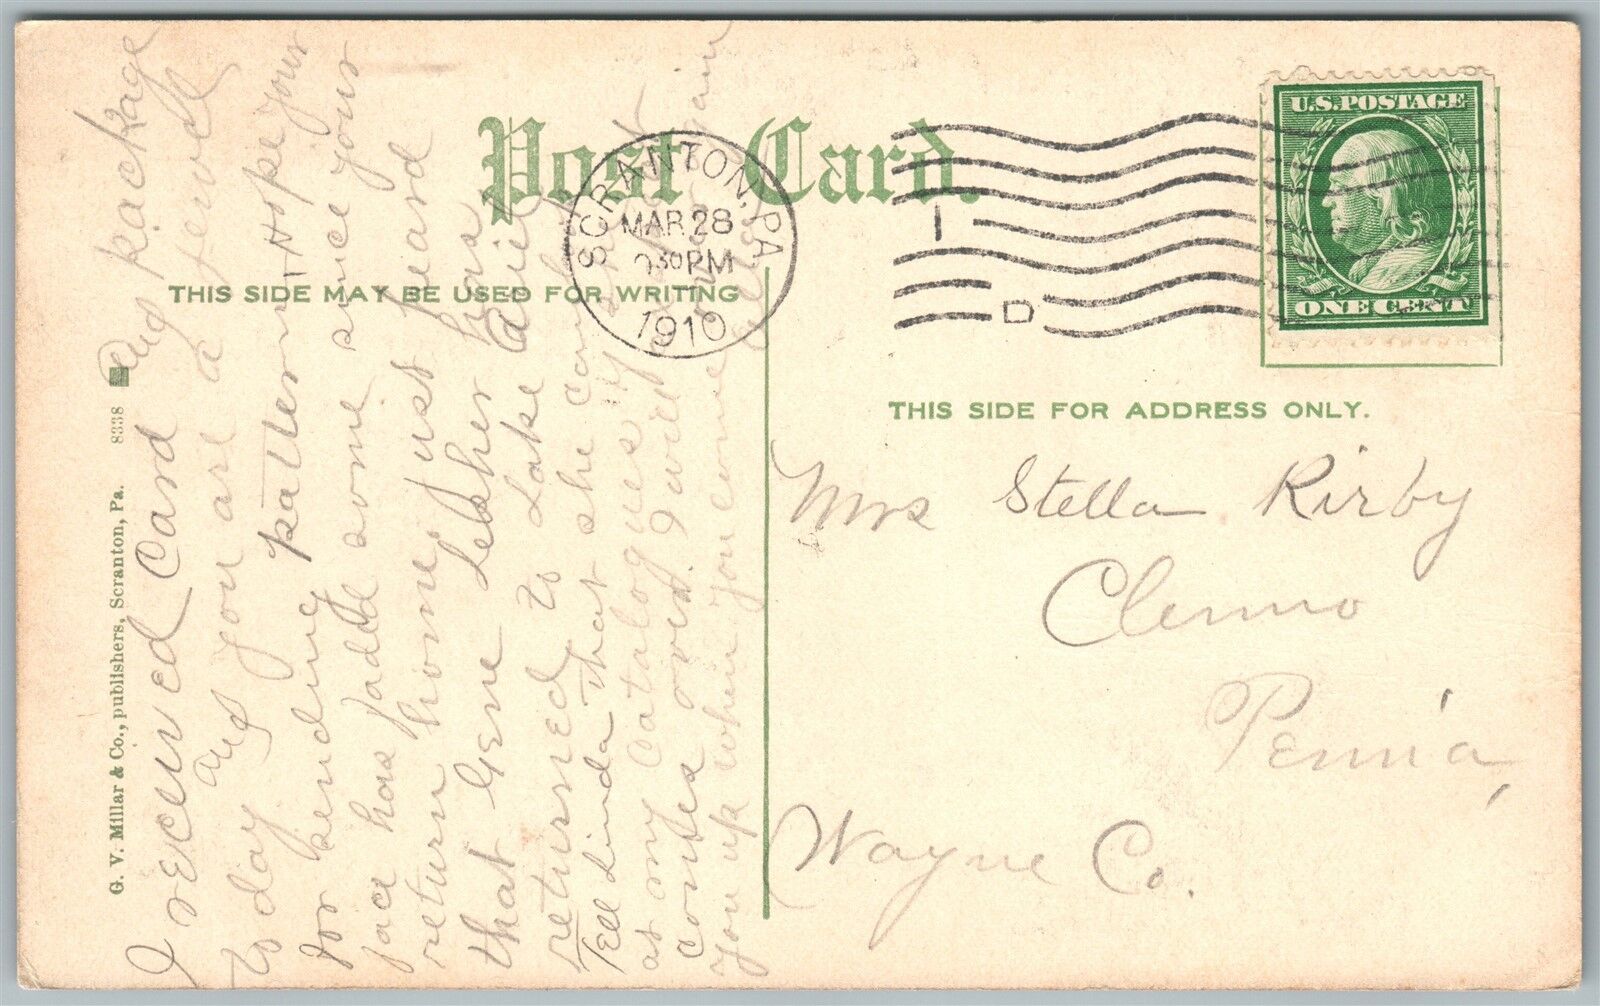 Post Card.
THIS SIDE MAY BE USED FOR WRITING
THIS SIDE FOR ADDRESS ONLY.
SCRANTON, PA
MAR 28
30 PM
1910
I
D
U.S. POSTAGE
ONE CENT
G. V. Millar & Co., publishers, Scranton, Pa. 8338
I received Card and package
to day and you are a jewel
for sending pattern, Hope your
has some since your
return home, just heard
that Gene Lesher has
returned to Lake
Tell Linda that she can look
at my Catalogues
comes over. I will
you up when you come again
Mrs Stella Kirby
Clemo
Penn'a,
Wayne Co.